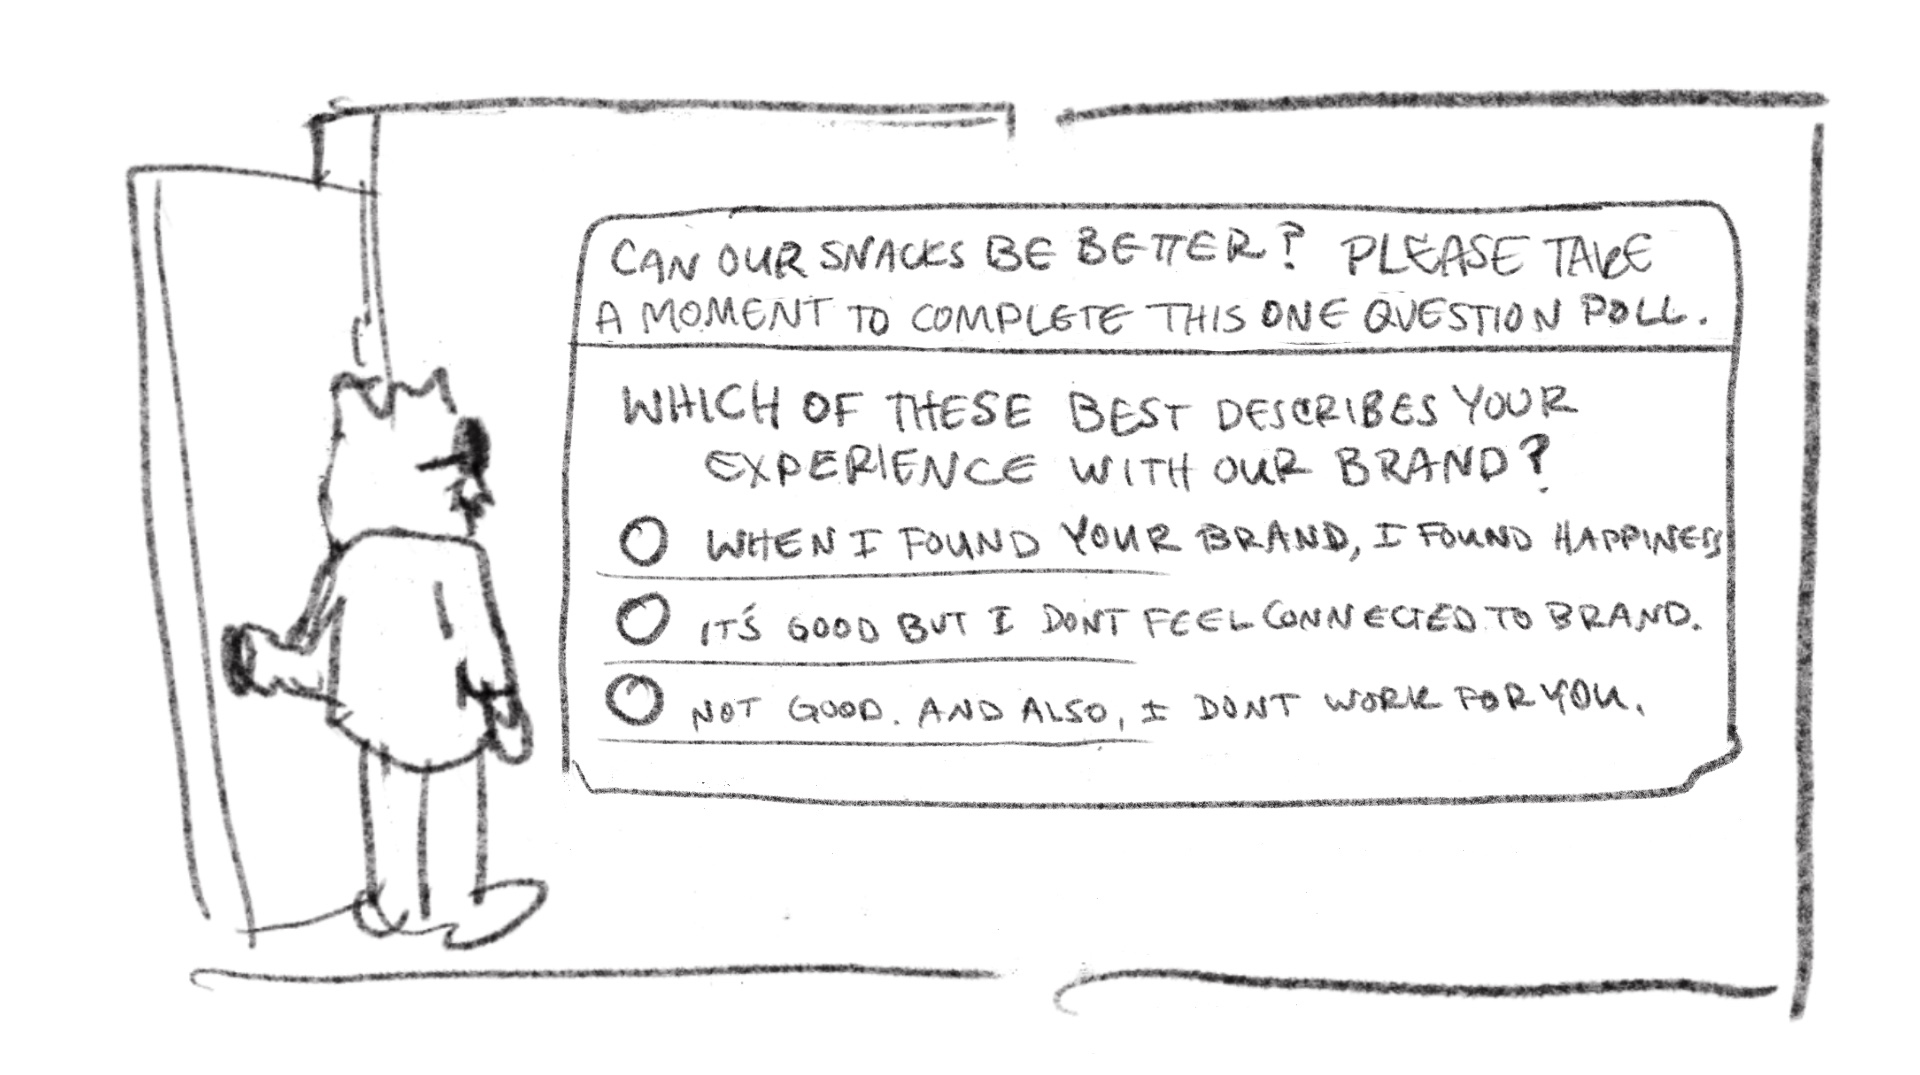 CAN OUR SNACKS BE BETTER? PLEASE TAKE
A MOMENT TO COMPLETE THIS ONE QUESTION POLL.
WHICH OF THESE BEST DESCRIBES YOUR
EXPERIENCE WITH OUR BRAND?
WHEN I FOUND YOUR BRAND, I FOUND HAPPINESS
IT'S GOOD BUT I DONT FEEL CONNECTED TO BRAND.
NOT GOOD. AND ALSO, I DONT WORK FOR YOU.